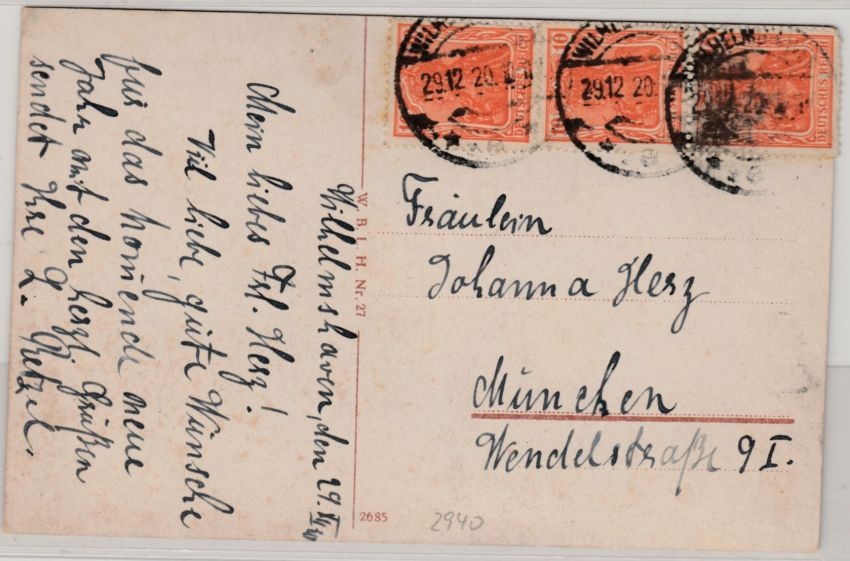 Wilhelmshaven, den 29. XII 20
Mein liebes Frl. Herz!
Viel liebe, gute Wünsche
für das komende neue
Jahr mit den herzl. Grüßen
sendet Ihre L. Retzel.
W. B. I. H. Nr. 27
2685
2940
29.12 20.
29.12 20.
DEUTSCHES REICH
10
DEUTSCHES REICH
Fräulein
Johanna Herz
München
Wendelstraße 9 I.